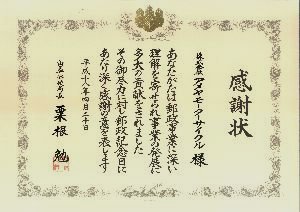 感謝状
株式会社 タケモトリサイクル 様
あなたがたは郵政事業に深い
理解を寄せられ事業の発展に
多大の貢献をされました
その御尽力に対し郵政記念日に
あたり深く感謝の意を表します
平成十八年四月二十日
栗根 勉